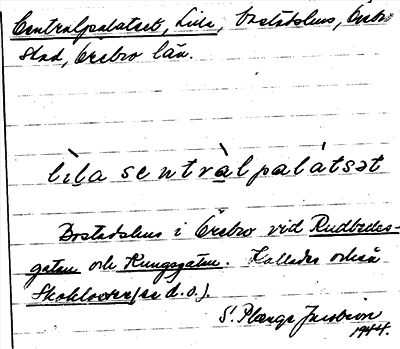 Centralpalatset, Lilla, bostadshus, Örebro
stad, Örebro län.
lìl̥a sentràlpalátsət
Bostadshus i Örebro vid Rudbecks-
gatan och Kungsgatan. Kallades också
(se d.o.).
S. Plænge Jacobson
1944.